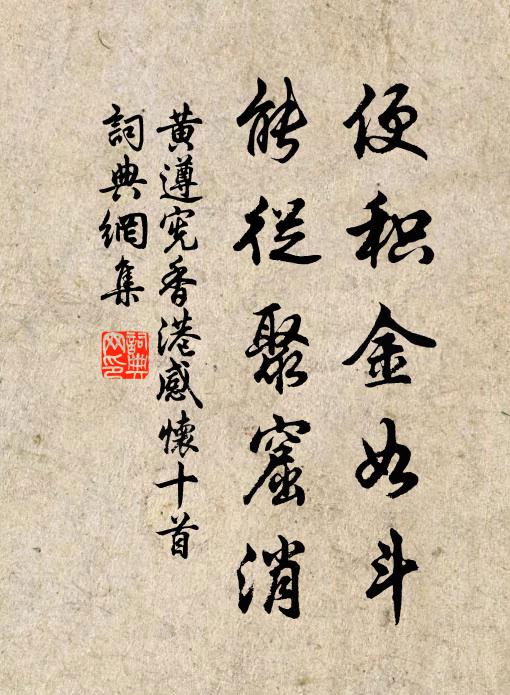 便积金如斗
能從聚窟消
黃遵宪香港感懷十首
詞典網集
詞典
网印